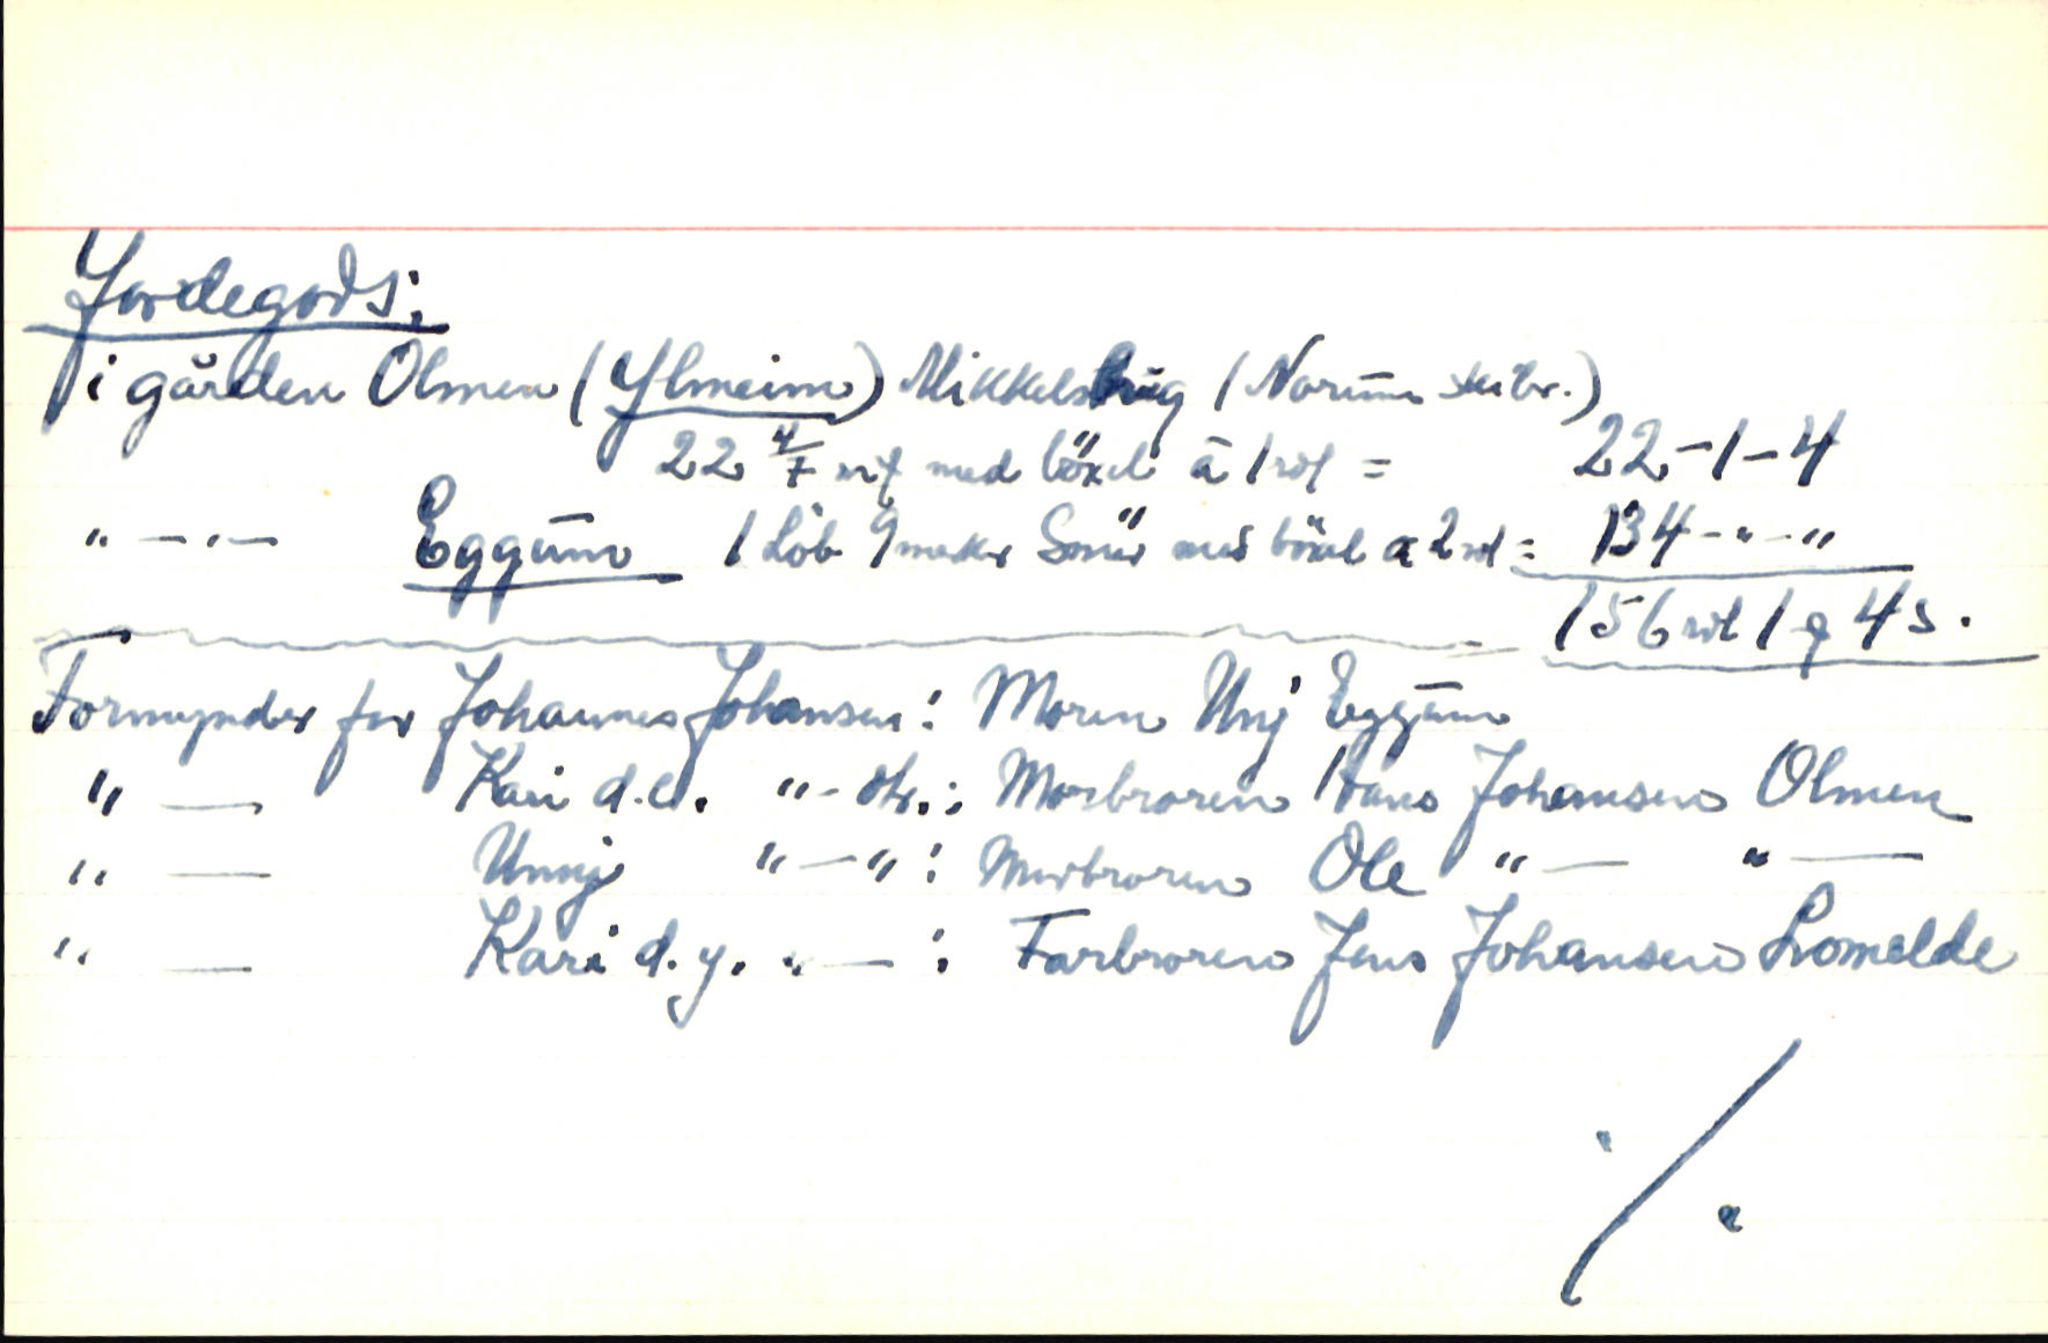 Jordegods:
i gården Olmen (Ylmeim) Mikkelsbrug (Norum skibr.)
22 4/7 mf med böxel à 1 rdl = 22-1-4
" — " — Eggum 1 Löb 9 merker Smör med böxel a 2 rdl = 134-"-"
156 rdl 1 q 4 s.
Formynder for Johannes Johansen: Moren Unj Eggum
" — Kari d.e. "- dtr.: Morbroren Hans Johansen Olmen
" — Unnj "—": Morbroren Ole "— "—
" — Kari d.y. "—: Farbroren Jens Johansen Lomelde
./.